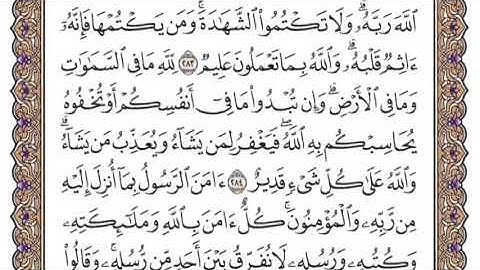 ٱللَّهَ رَبَّهُۥۗ وَلَا تَكْتُمُوا۟ ٱلشَّهَٰدَةَۚ وَمَن يَكْتُمْهَا فَإِنَّهُۥٓ
ءَاثِمٌ قَلْبُهُۥۗ وَٱللَّهُ بِمَا تَعْمَلُونَ عَلِيمٌ ٢٨٣ لِّلَّهِ مَا فِى ٱلسَّمَٰوَٰتِ
وَمَا فِى ٱلْأَرْضِۗ وَإِن تُبْدُوا۟ مَا فِىٓ أَنفُسِكُمْ أَوْ تُخْفُوهُ
يُحَاسِبْكُم بِهِ ٱللَّهُۖ فَيَغْفِرُ لِمَن يَشَآءُ وَيُعَذِّبُ مَن يَشَآءُۗ
وَٱللَّهُ عَلَىٰ كُلِّ شَىْءٍ قَدِيرٌ ٢٨٤ ءَامَنَ ٱلرَّسُولُ بِمَآ أُنزِلَ إِلَيْهِ
مِن رَّبِّهِۦ وَٱلْمُؤْمِنُونَۚ كُلٌّ ءَامَنَ بِٱللَّهِ وَمَلَٰٓئِكَتِهِۦ
وَكُتُبِهِۦ وَرُسُلِهِۦ لَا نُفَرِّقُ بَيْنَ أَحَدٍ مِّن رُّسُلِهِۦۚ وَقَالُوا۟